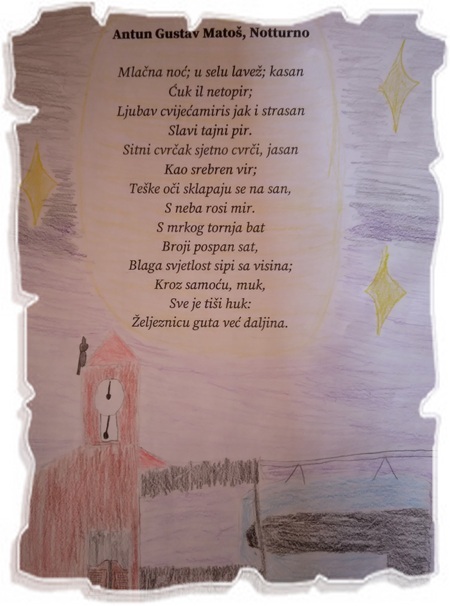 Antun Gustav Matoš, Notturno
Mlačna noć; u selu lavež; kasan
Ćuk il netopir;
Ljubav cvijećamiris jak i strasan
Slavi tajni pir.
Sitni cvrčak sjetno cvrči, jasan
Kao srebren vir;
Teške oči sklapaju se na san,
S neba rosi mir.
S mrkog tornja bat
Broji pospan sat,
Blaga svjetlost sipi sa visina;
Kroz samoću, muk,
Sve je tiši huk:
Željeznicu guta već daljina.